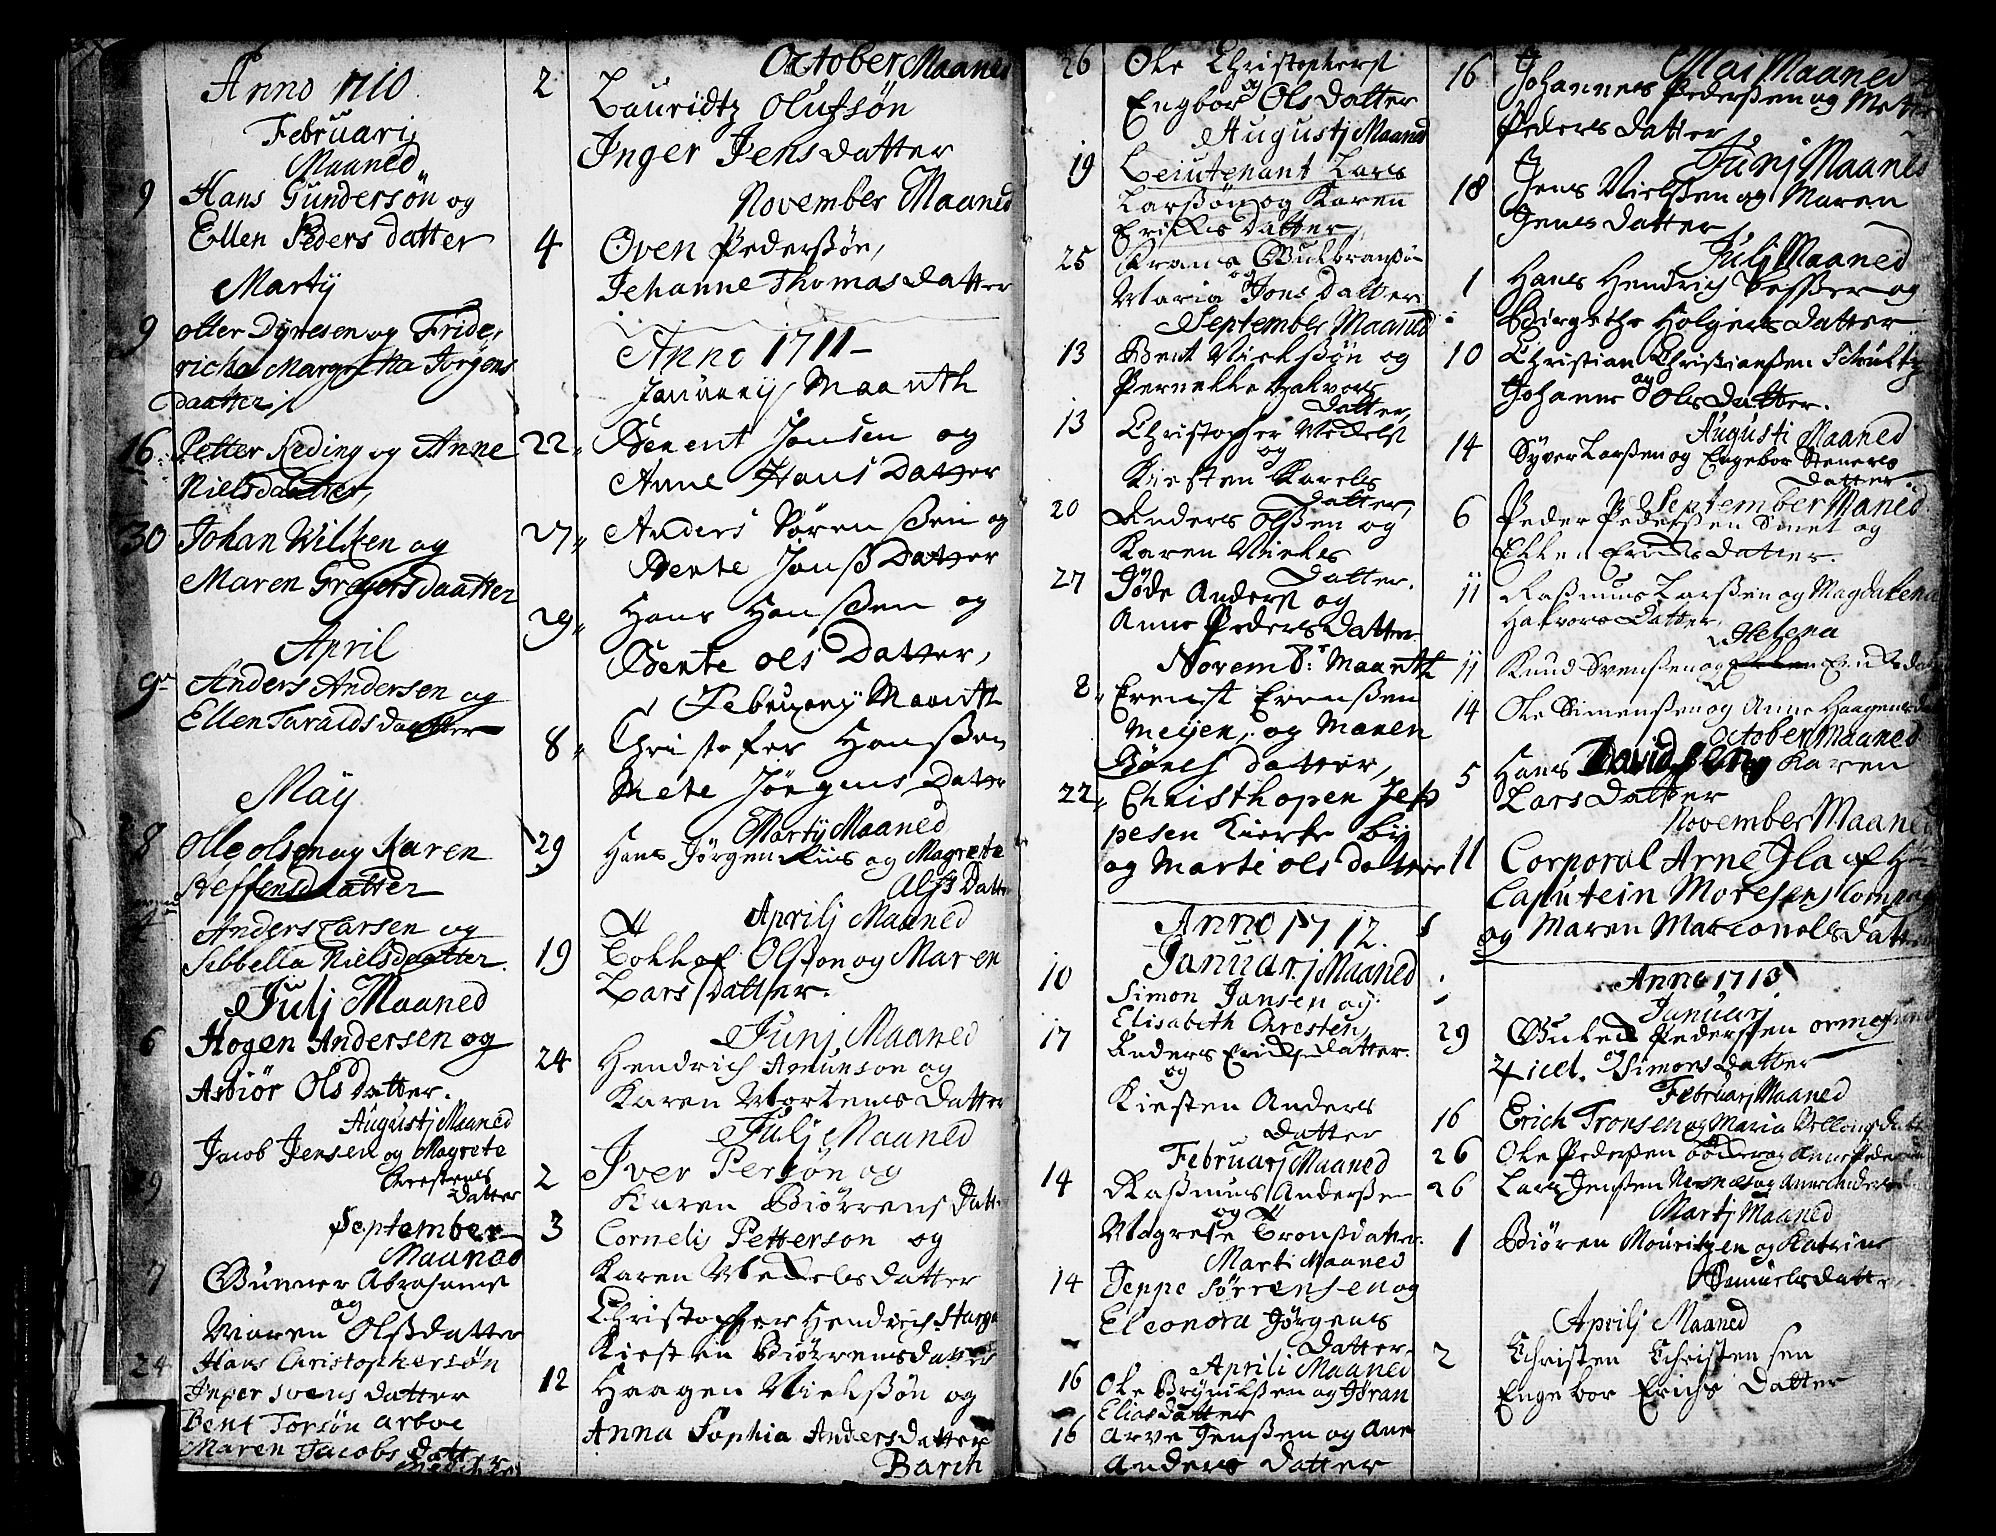 Anno 1710
Februarij
Maaned
9 Hans Gundersøn og
Ellen Peders datter
Martÿ
9 otter Dÿnesen og Fride,
richa Margretta Jorgens
daatter
16 Petter Reding og Anne
Nielsdaatter,
30 Johan Wilken og
Maren Gregersdaatter
April
9 Anders Andersen og
Ellen Taraldsdaatter
Maÿ
8 Olle olsen og Karen
Steffensdaatter
Anders Larsen og
Sibbella Nielsdaatter
Julj Maaned
6 Hogen Andersen og
Asbiør Olsdatter.
Augustj Maaned
Jacob Jensen og Magrete
29 Chrestens
datter
September
Maaned
7 Gunner Abrahams
og
Maren Olsdatter
24 Hans Christophersøn
Inger Svens datter
Bent Torsøn arboe
Maren Jacobs datter
October Maaned
2 Lauridtz Olufsøn
Inger Jens datter
November Maaned
4 Oven Pederssøn,
Jehanne Thomas datter
Anno 1711
January Maanth
22 Benent Jansen og
Anne Hans Datter
27 Anders Sørenssen og
Bente Jans Datter
29 Hans Hanssen og
Bente ols Datter,
February Maanth
8 Christofer Hanssen
Mete Jørgens Datter
Martÿ Maaned
29 Hans Jørgen Riis og Magrete
Alfs Datter
Aprilj Maaned
19 Tollof Olsson og Maren
Lars datter.
Junj Maaned
24 Hendrich Amunson og
Karen Mortens Datter
Julj Maaned
2 Iver Persøn og
Karen Biørrens Datt
3 Cornelis Petterson og
Karen Wedels datter
Christopher Hendrich
Kirstin Biørrens datter
12 Haagen Nielssøn og
Anna Sophia Anders datter
Barth
26 Ole Christophers
og
Engbor Ols datter
Augustj Maaned
19 Leiutenant Lars
Larssøn og Karen
Erichs datter,
25 Frans Gulbranssø
og
Maria Jons datter
September Maaned
13 Bent Nielssøn og
Pernelle Halvors
datter,
13 Christopher Wedels
og
Kirsten Karels
datter,
20 Anders Olssen og
Karen Niels
datter.
27 Jøde Anders og
Anne Peders datter
Novemb: Maanth
8 Erenst Erenssen
Meÿer, og Maren
datter,
22 Christhopen Jep
pesen Kierke bÿ
og Marte ols datter
Anno 1712.
Januarj Maaned
10 Simon Jansen og
Elisabeth Chresten,
17 Anders Erichs datter.
og
Kiesten Anders
datter
Februarj Maaned
14 Rasmus Anderssen
og
Magrete Tronsdatter
Marti Maaned
14 Jeppe Sørrensen og
Eleonora Jørgens
datter
Aprili Maaned
16 Ole Brÿnilssen og Jøran
Eliasdatter
16 Arve Jenssen og Ane
Anders datter
Maj Maaned
16 Johannes Pederssen og Mette
Peders datter
Junj Maaned
18 Jens Nielssen og Maren
Jens datter
Julj Maaned
1 Hans Hendrich og
Birgethe Holgers datter
10 Christian Christianssen Schultz
og
Johanne Ols datter.
Augusti Maaned
14 Syver Larssen og Engebor Steners
datter
September Maned
6 Peder Pederssen Smet og
Ellen Erichs datter.
11 Rasmus Larssen og Magdalena
Halvors datter,
Helena
11 Knud Svenssen og Erichsdat
14 Ole Simenssen og Anne Haagensda
October Maaned
5 Hans Davidsen og Karen
Lars datter
November Maaned
11 Corporal Arne Ila af Hr
Caputein Motesens Compag
og Maren Marionelsdatter
Anno 1713
Januarj
29 Guled Pederssen ormesund
og Simons datter
Februarj Maaned
16 Erich Tronsen og Maria datt
26 Ole Pederssen bøder og Anne Peders
26 Lars Jenssen og Anne Anders
Martj Maaned
1 Biøren Mouritzen og Katrine
Samuels datter
Aprilj Maaned
2 Christen Christensen
Engebor Erichs datter